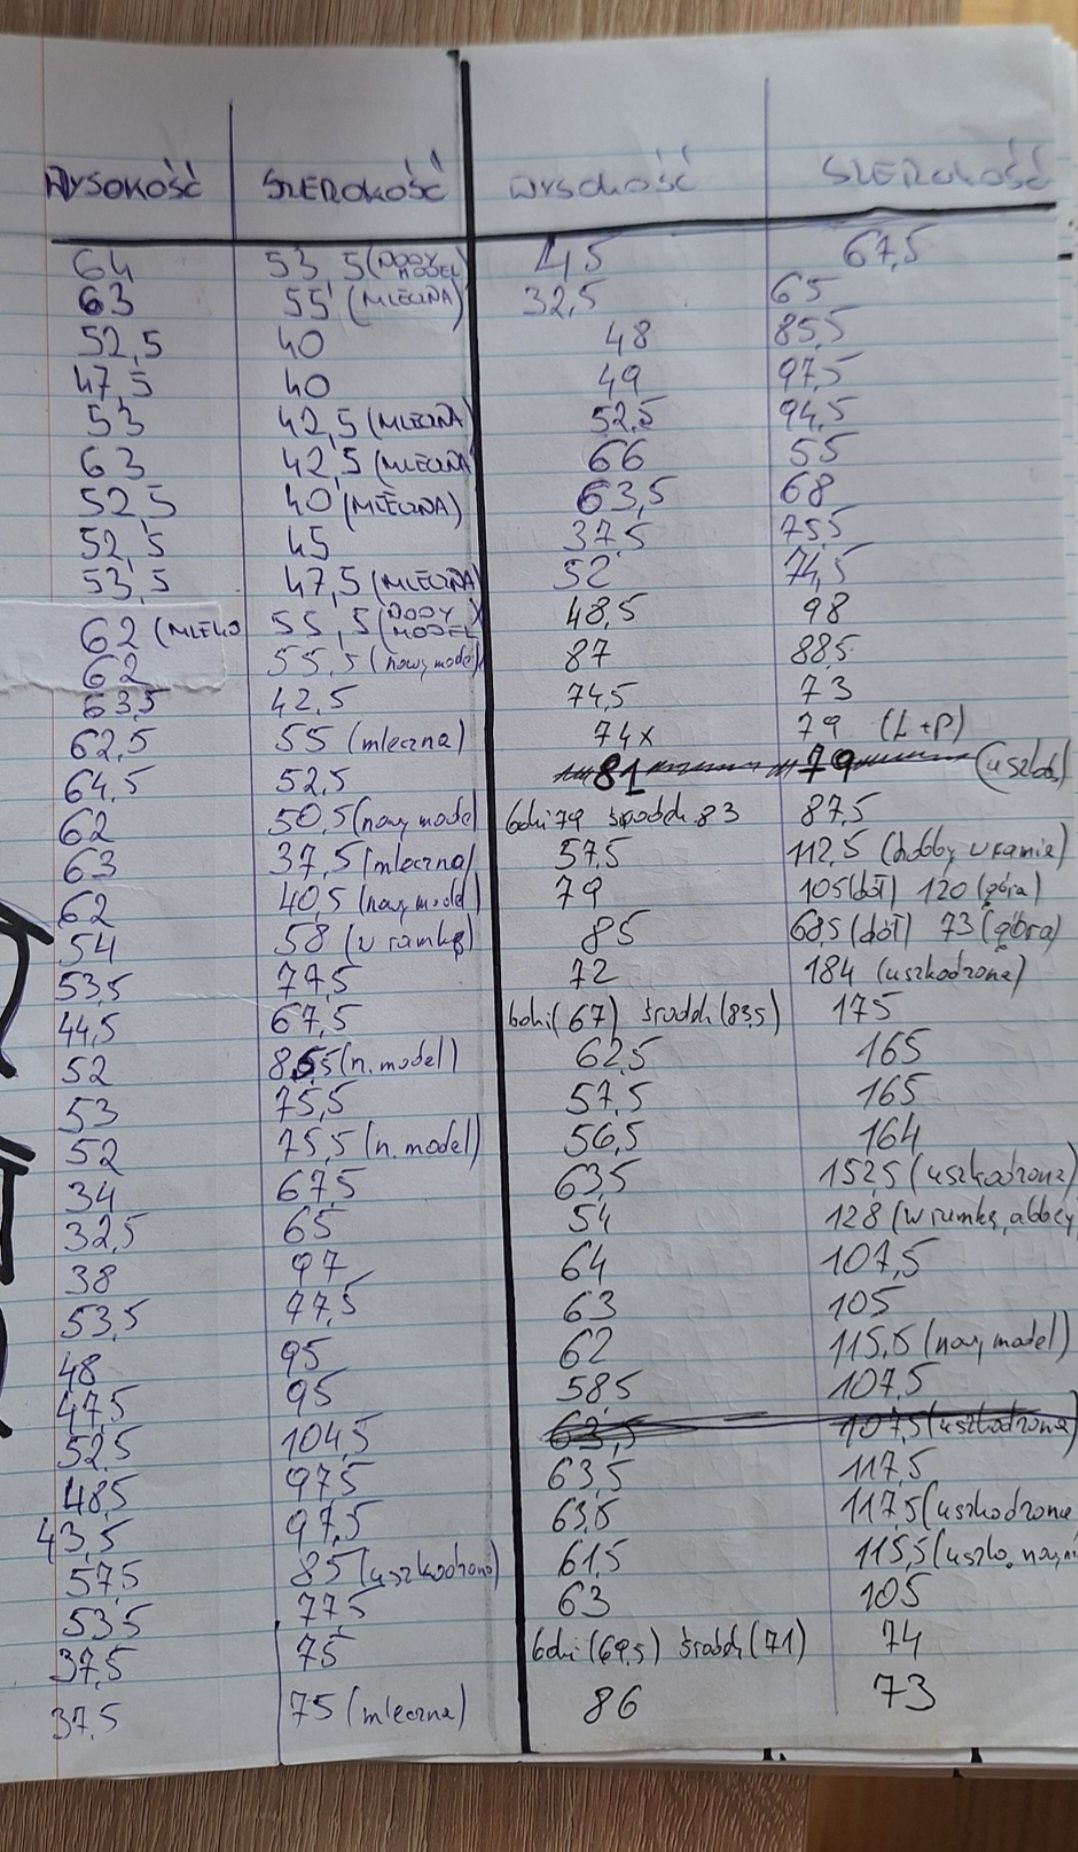 WYSOKOŚĆ SZEROKOŚĆ WYSOKOŚĆ SZEROKOŚĆ
64 53,5 (MODEL) 45 67,5
63 55 (MLECZNA) 32,5 65
52,5 40 48 85,5
47,5 40 49 97,5
53 42,5 (MLECZNA) 52,5 94,5
63 42,5 (MLECZNA 66 55
52,5 40 (MLECZNA) 63,5 68
52,5 45 37,5 75,5
53,5 47,5 (MLECZNA) 52 74,5
62 (MLEKO 55,5 (MODEL 48,5 98
62 55,5 (nowy model) 87 88,5
63,5 42,5 74,5 73
62,5 55 (mleczna) 74x 79 (L+P)
64,5 52,5 81 79
62 50,5 (nowy model boki 79 środek 83 87,5
63 37,5 (mleczna) 57,5 112,5 (hobby v ramie)
62 40,5 (nowy model) 79 105 (dół) 120 (góra)
54 58 (v ramkę) 85 68,5 (dół) 73 (góra)
53,5 77,5 72 184 (uszkodzone)
44,5 67,5 boki (67) środek (83,5) 175
52 85,5 (n. model) 62,5 165
53 75,5 57,5 165
52 75,5 (n. model) 56,5 164
34 67,5 63,5 152,5 (uszkodzone)
32,5 65 54 128 (w ramkę, abbey
38 97 64 107,5
53,5 77,5 63 105
48 95 62 115,5 (nowy model)
47,5 95 58,5 107,5
52,5 104,5 63,5 107,5 (uszkodzona)
48,5 97,5 63,5 117,5
43,5 97,5 63,5 117,5 (uszkodzone
57,5 85 (uszkodzone) 61,5 115,5
53,5 77,5 63 105
37,5 75 boki (69,5) środek (71) 74
37,5 75 (mleczna) 86 73